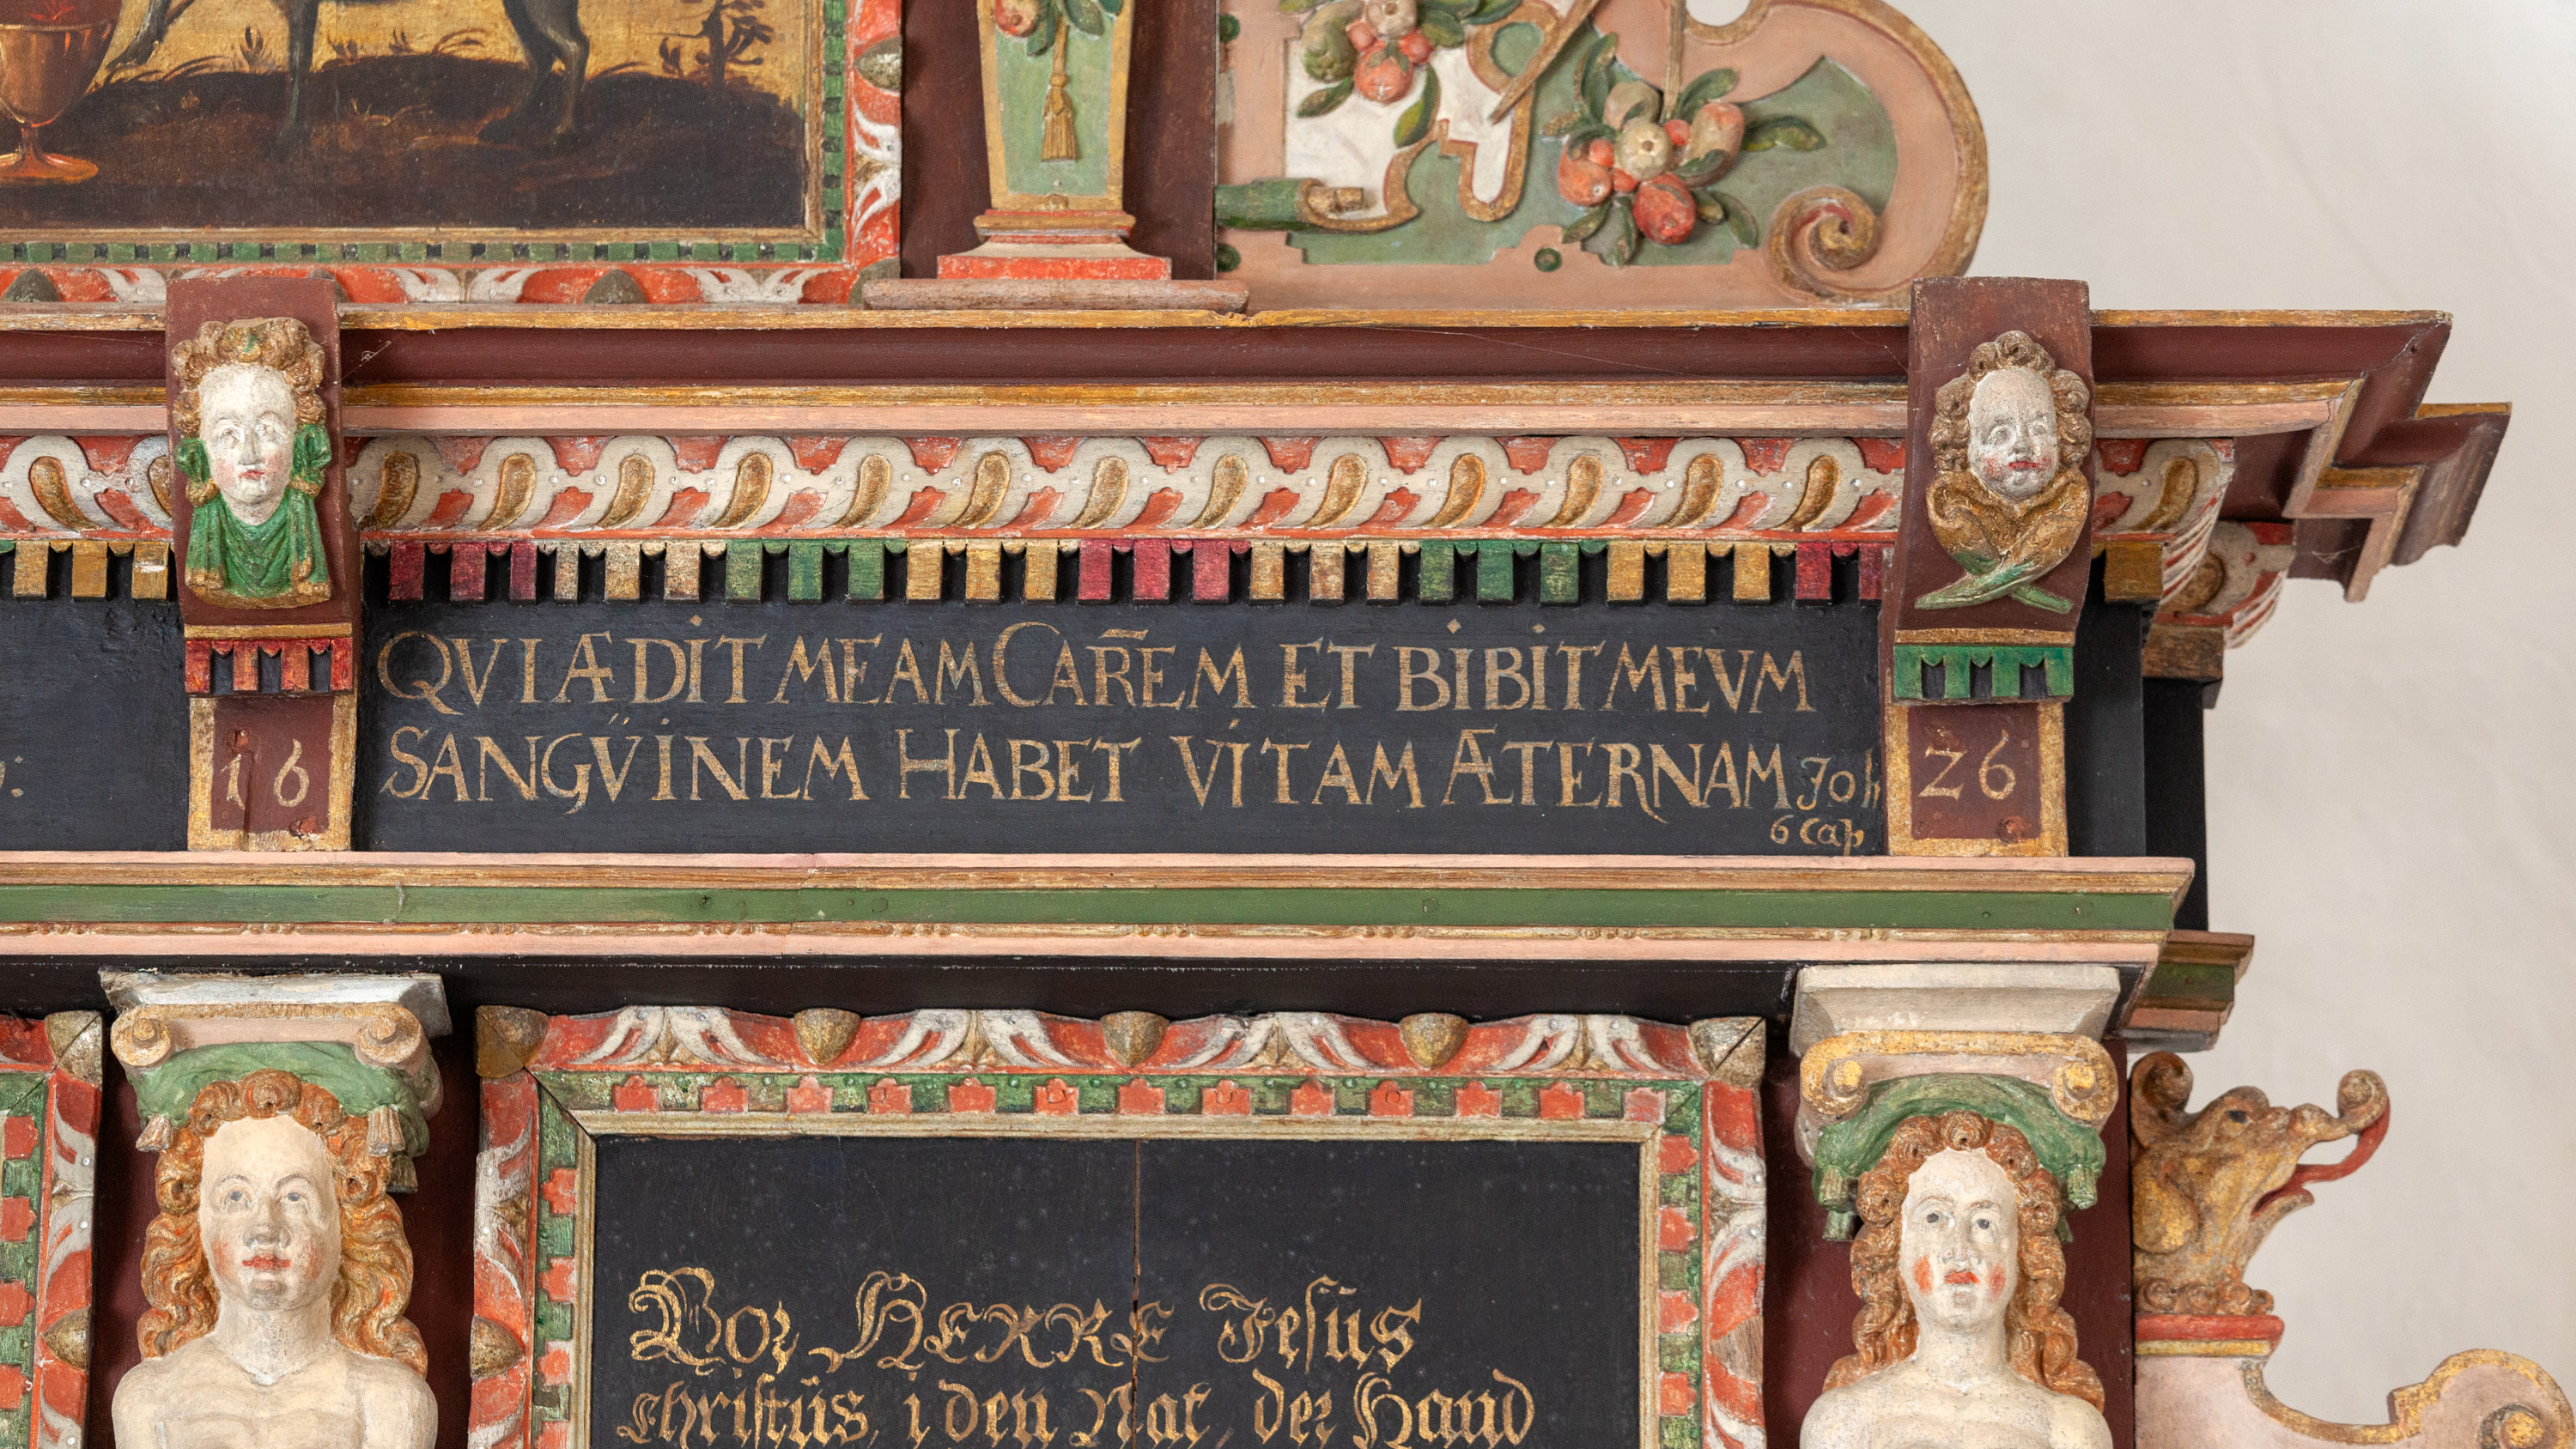 QVI ÆDIT MEAM CAR̃EM ET BIBIT MEVM
SANGV̈INEM HABET VITAM ÆTERNAM Joh
6 Cap
16
26
Vor HERRE Jesüs
Christüs, i den Nat, der Hand